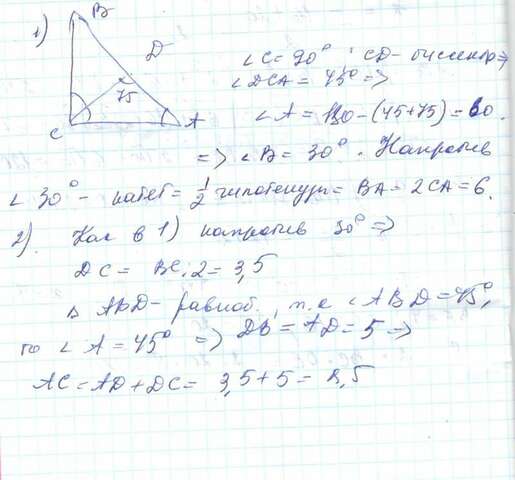 1)
B
D
75
C
A
∠C = 90° ; CD - биссектр ⇒
∠DCA = 45° ⇒
∠A = 180 - (45+75) = 60.
⇒ ∠B = 30°. Напротив
∠ 30° - катет = 1/2 гипотенузы = BA = 2CA = 6.
2). Как в 1) напротив 30° ⇒
DC = BC:2 = 3,5
в ABD - равноб., т.к ∠ABD = 45°,
то ∠A = 45° ⇒ DB = AD = 5 ⇒
AC = AD + DC = 3,5 + 5 = 8,5